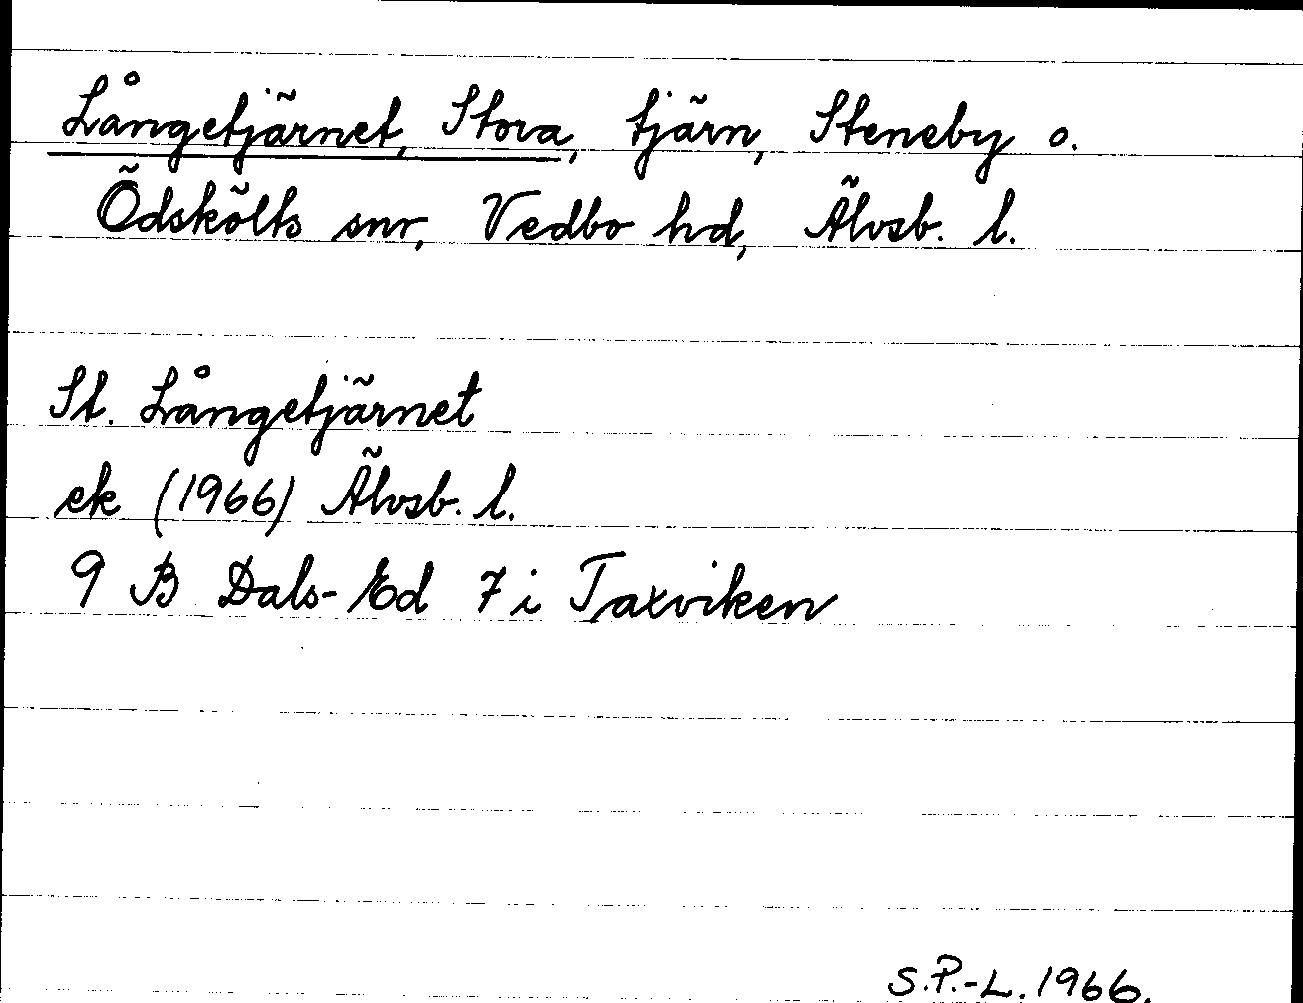 Långetjärnet, Stora, tjärn, Steneby o.
Ödskölts snr, Vedbo hd, Älvsb. l.
St. Långetjärnet
ek (1966) Älvsb. l.
9 B Dals-Ed 7 i Taxviken
S.P.-L. 1966.